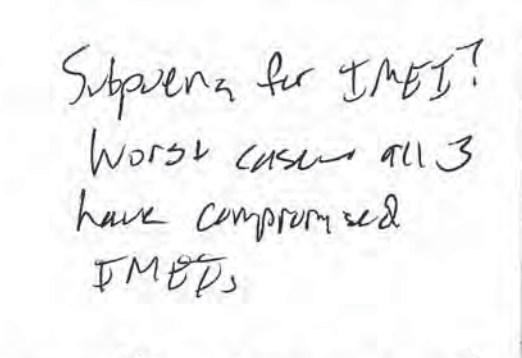 Subpoena for IMEI?
Worst case all 3
have compromised
IMEIs